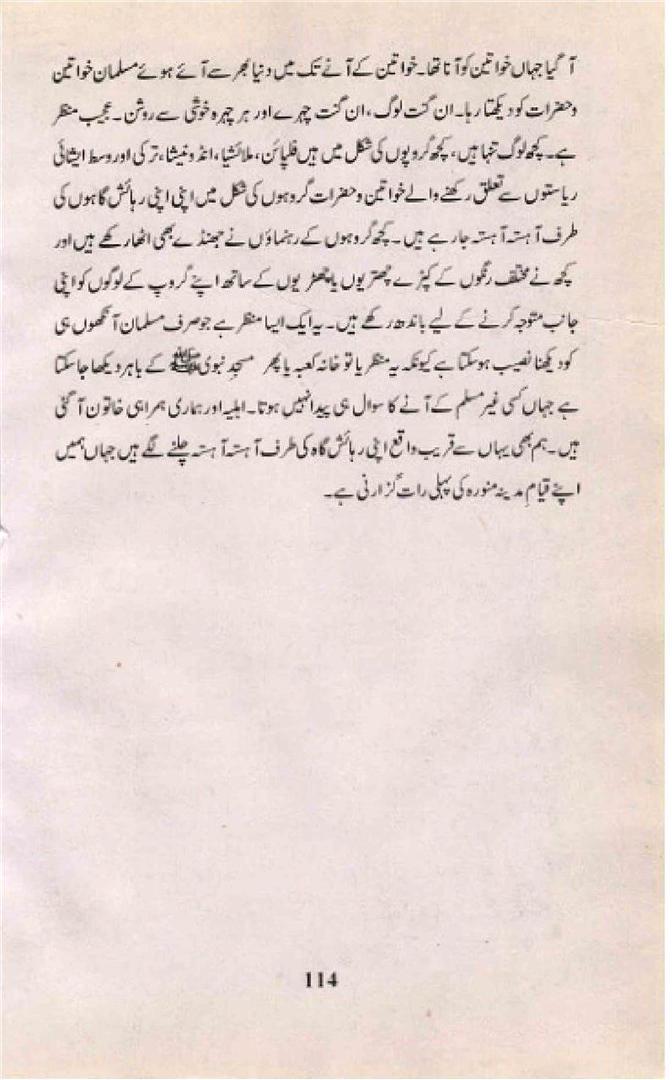 آ گیا جہاں خواتین کو آنا تھا۔ خواتین کے آنے تک میں دنیا بھر سے آئے ہوئے مسلمان خواتین
و حضرات کو دیکھتا رہا۔ ان گنت لوگ، ان گنت چہرے اور ہر چہرہ خوشی سے روشن۔ عجیب منظر
ہے۔ کچھ لوگ تنہا ہیں، کچھ گروپوں کی شکل میں ہیں فلپائن، ملائشیا، انڈونیشا، ترکی اور وسط ایشائی
ریاستوں سے تعلق رکھنے والے خواتین و حضرات گروہوں کی شکل میں اپنی اپنی رہائش گاہوں کی
طرف آہستہ آہستہ جا رہے ہیں۔ کچھ گروہوں کے رہنماؤں نے جھنڈے بھی اٹھا رکھے ہیں اور
کچھ نے مختلف رنگوں کے کپڑے چھتریوں یا چھڑیوں کے ساتھ اپنے گروپ کے لوگوں کو اپنی
جانب متوجہ کرنے کے لیے باندھ رکھے ہیں۔ یہ ایک ایسا منظر ہے جو صرف مسلمان آنکھوں ہی
کو دیکھنا نصیب ہو سکتا ہے کیونکہ یہ منظر یا تو خانہ کعبہ یا پھر مسجد نبوی ﷺ کے باہر دیکھا جا سکتا
ہے جہاں کسی غیر مسلم کے آنے کا سوال ہی پیدا نہیں ہوتا۔ اہلیہ اور ہماری ہمراہی خاتون آ گئی
ہیں۔ ہم بھی یہاں سے قریب واقع اپنی رہائش گاہ کی طرف آہستہ آہستہ چلنے لگے ہیں جہاں ہمیں
اپنے قیامِ مدینہ منورہ کی پہلی رات گزارنی ہے۔
114